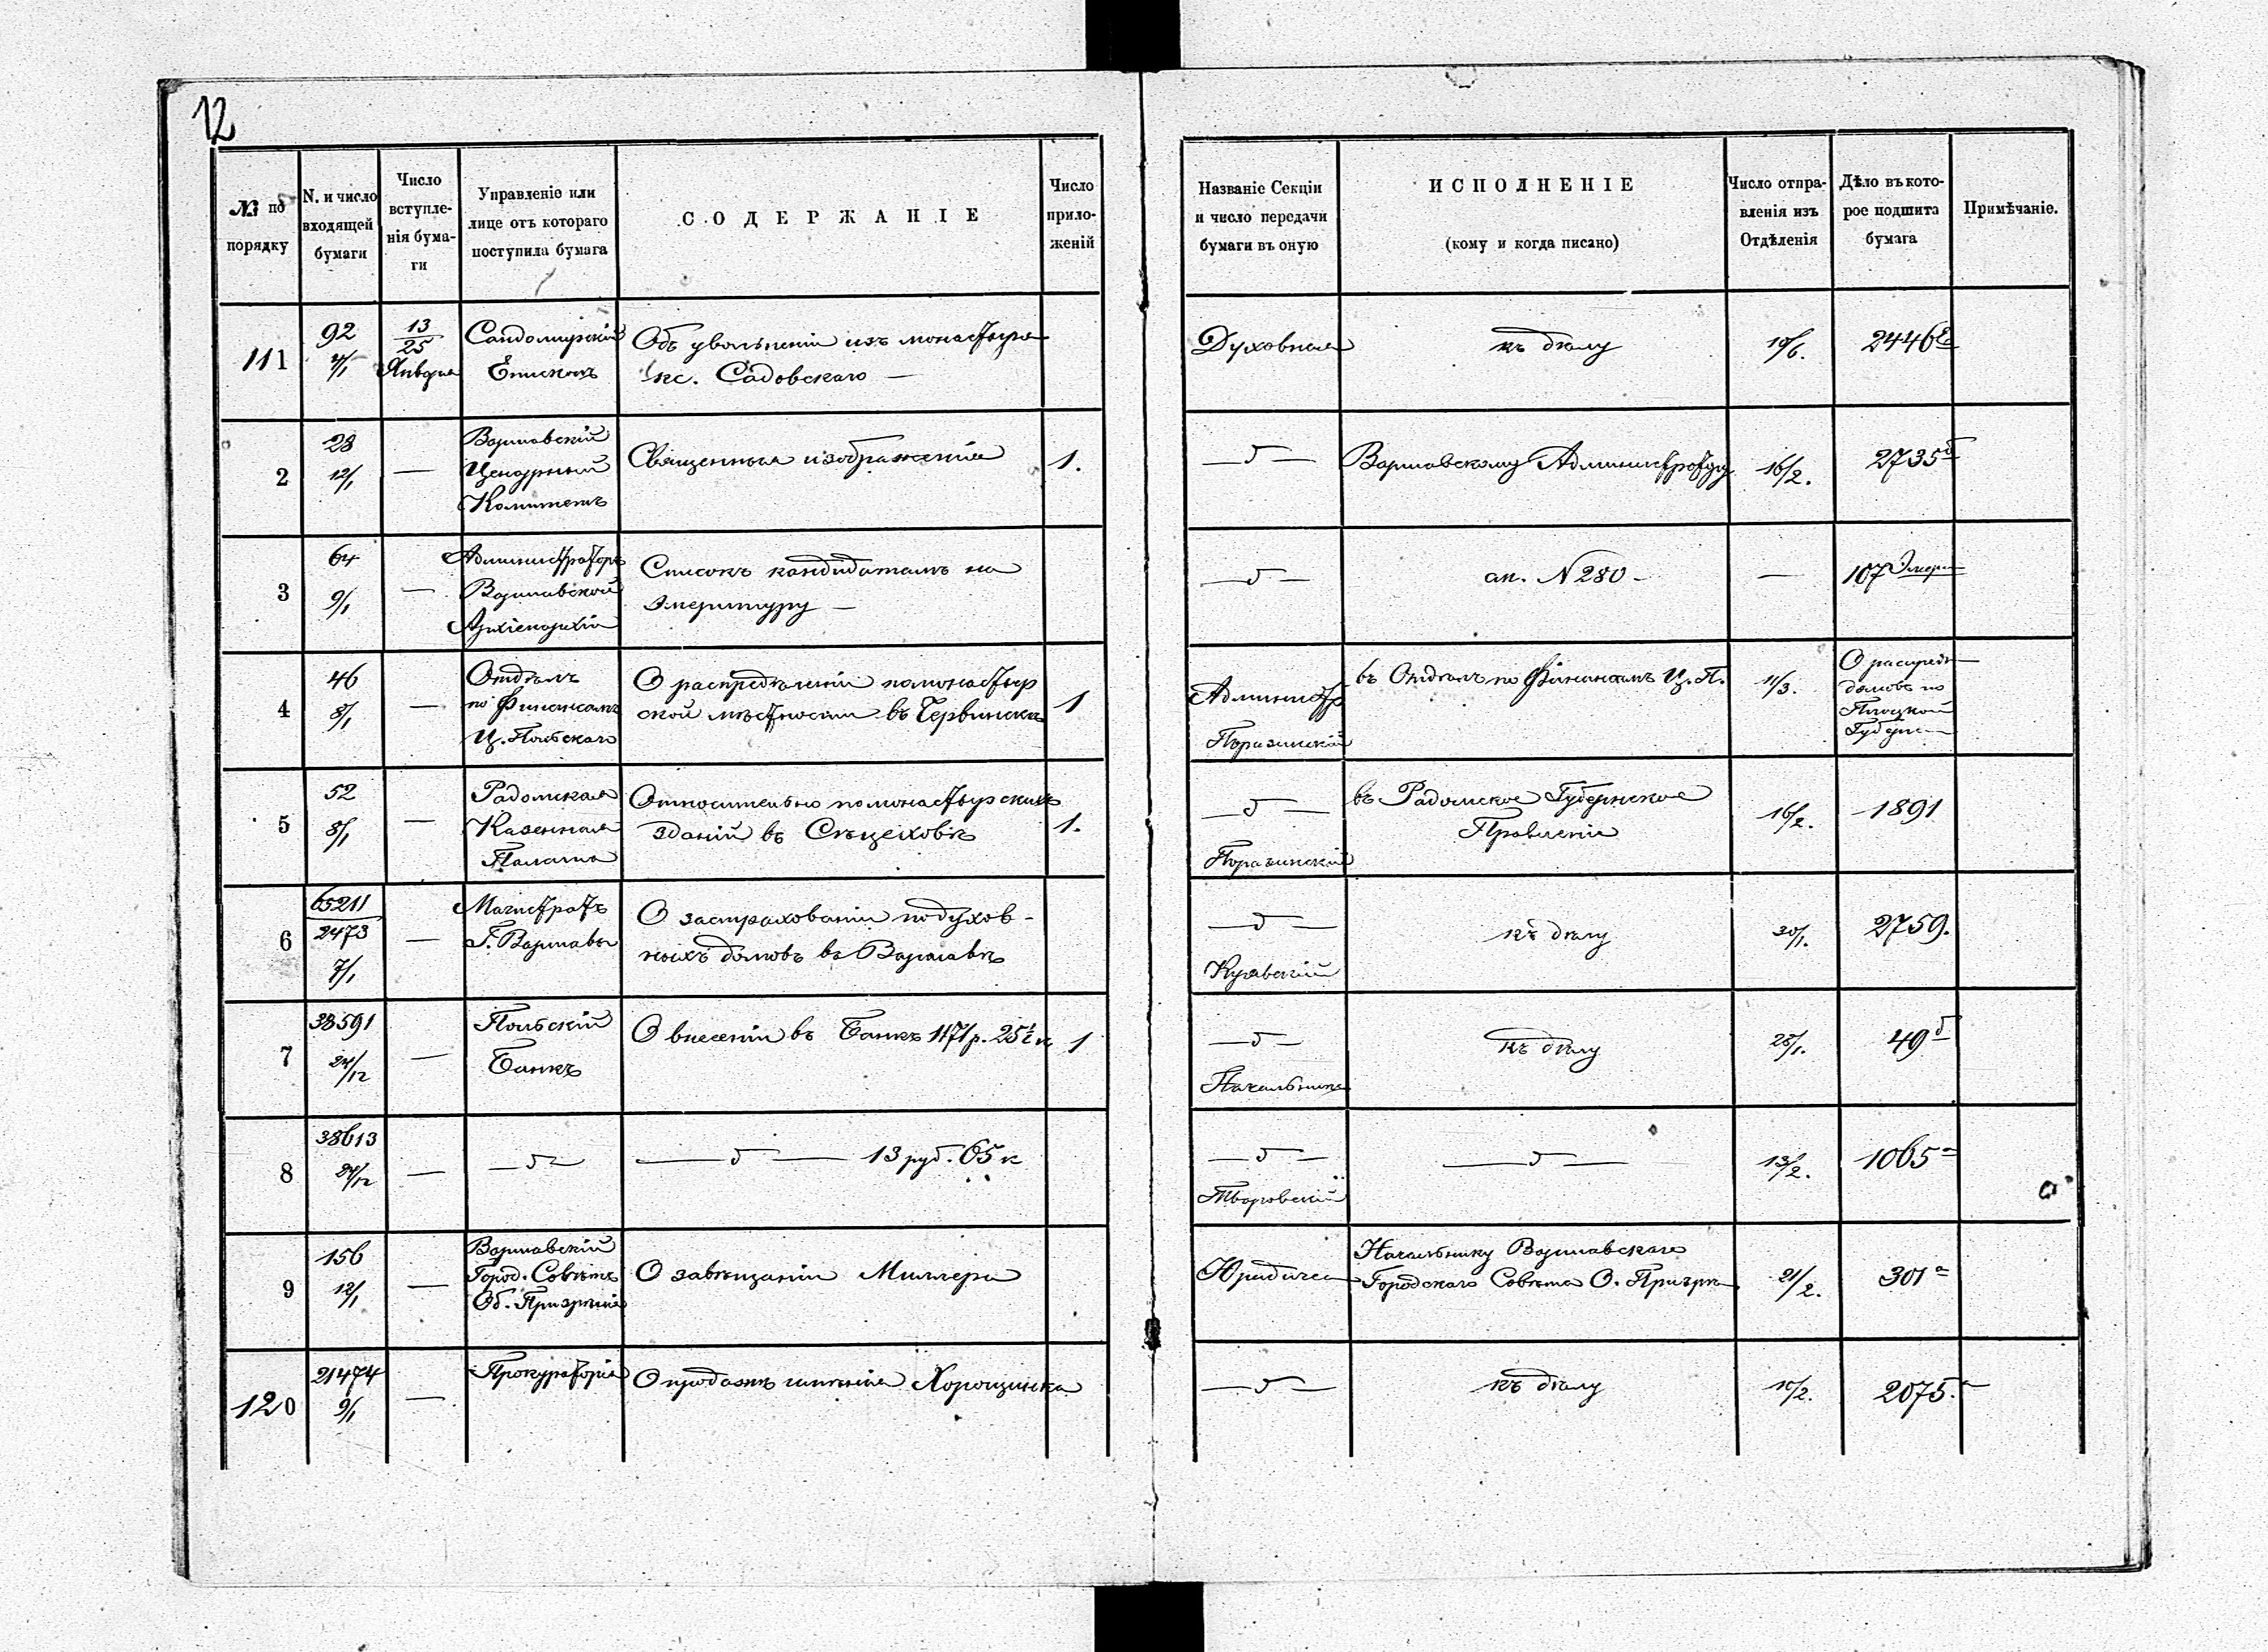 12
№ по порядку
N. и число входящей бумаги
Число вступленія бумаги
Управленіе или лице отъ котораго поступила бумага
СОДЕРЖАНІЕ
Число приложеній
Названіе Секціи и число передачи бумаги въ оную
ИСПОЛНЕНІЕ
(кому и когда писано)
Число отправленія изъ Отдѣленія
Дѣло въ которое подшита бумага
Примѣчаніе.
111
92
4/1
13/25
Января
Сандомирскій
Епископъ
Объ увольненіи изъ монастыря
кс. Садовскаго —
Духовная
къ дѣлу
10/6.
2446
2
28
12/1
—
Варшавскій
Цензурный
Комитетъ
Священныя изображенія
1.
Варшавскому Администратору
16/2.
2735б
3
64
9/1
—
Администраторъ
Варшавской
Архіепархіи
Списокъ кандидатамъ на
эмеритуру —
ак. N 280 —
—
107 Эмери
4
46
8/1
—
Отдѣлъ
по Финансамъ
Ц. Польскаго
О распредѣленіи помонастыр
ской мѣстности въ Червинскѣ
1
Администр
Поразинскій
въ Отдѣлъ по Финансамъ Ц. П.
11/3.
О распредѣ
домовъ по
Плоцкой
Губерн
5
52
8/1
—
Радомская
Казенная
Палата
Относительно помонастырскихъ
зданій въ Сѣцеховѣ
1.
Поразинскій
въ Радомское Губернское
Правленіе
16/2.
1891
6
65211
2473
7/1
—
Магистратъ
Г. Варшавы
О застрахованіи подухов-
ныхъ домовъ въ Варшавѣ
Куявскій
къ дѣлу
30/1.
2759.
7
38591
24/12
—
Польскій
Банкъ
О внесеніи въ Банкъ 1171 р. 25½ к
1
Начальника
къ дѣлу
28/1.
49б
8
38613
24/12
—
13 руб. 65 к
Творовскій
13/2.
1065а
9
156
12/1
—
Варшавскій
Город. Совѣтъ
Об. Призрѣнія
О завѣщаніи Миллера
Юридичес
Начальнику Варшавскаго
Городскаго Совѣта О. Призрѣ
21/2.
301а
120
21474
9/1
—
Прокураторія
О продажѣ имѣнія Хорощинка
къ дѣлу
10/2.
2075.